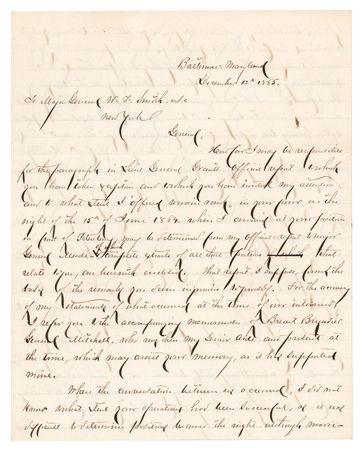 Baltimore, Maryland
December 12th 1865.
To Major General W. F. Smith. &c
New York
General,
How far I may be responsible
for the paragraph in Lieut General Grants Official report to which
you have taken exception and to which you have invited my attention
and to what extent I offered
night of the 15th of June 1864, when I arrived at your position
in front of Petersburg may be determined from my official report to Major
General Meade, complete extracts of all those portions which
relate to you, are herewith enclosed. That report, I suppose, forms the
basis of the remarks you deem injurious to yourself. For the accuracy
of my statements of what occurred at the time of our interview,
I refer you to the accompanying memorandum of Brevet Brigadier
General Mitchell, who was then my Senior Aide and present at
the time, which may assist your memory, as it has supported
mine.
When the conversation between us occurred, I did not
know what extent your operations had been successful, as it was
difficult to determine positions because the night although moon-